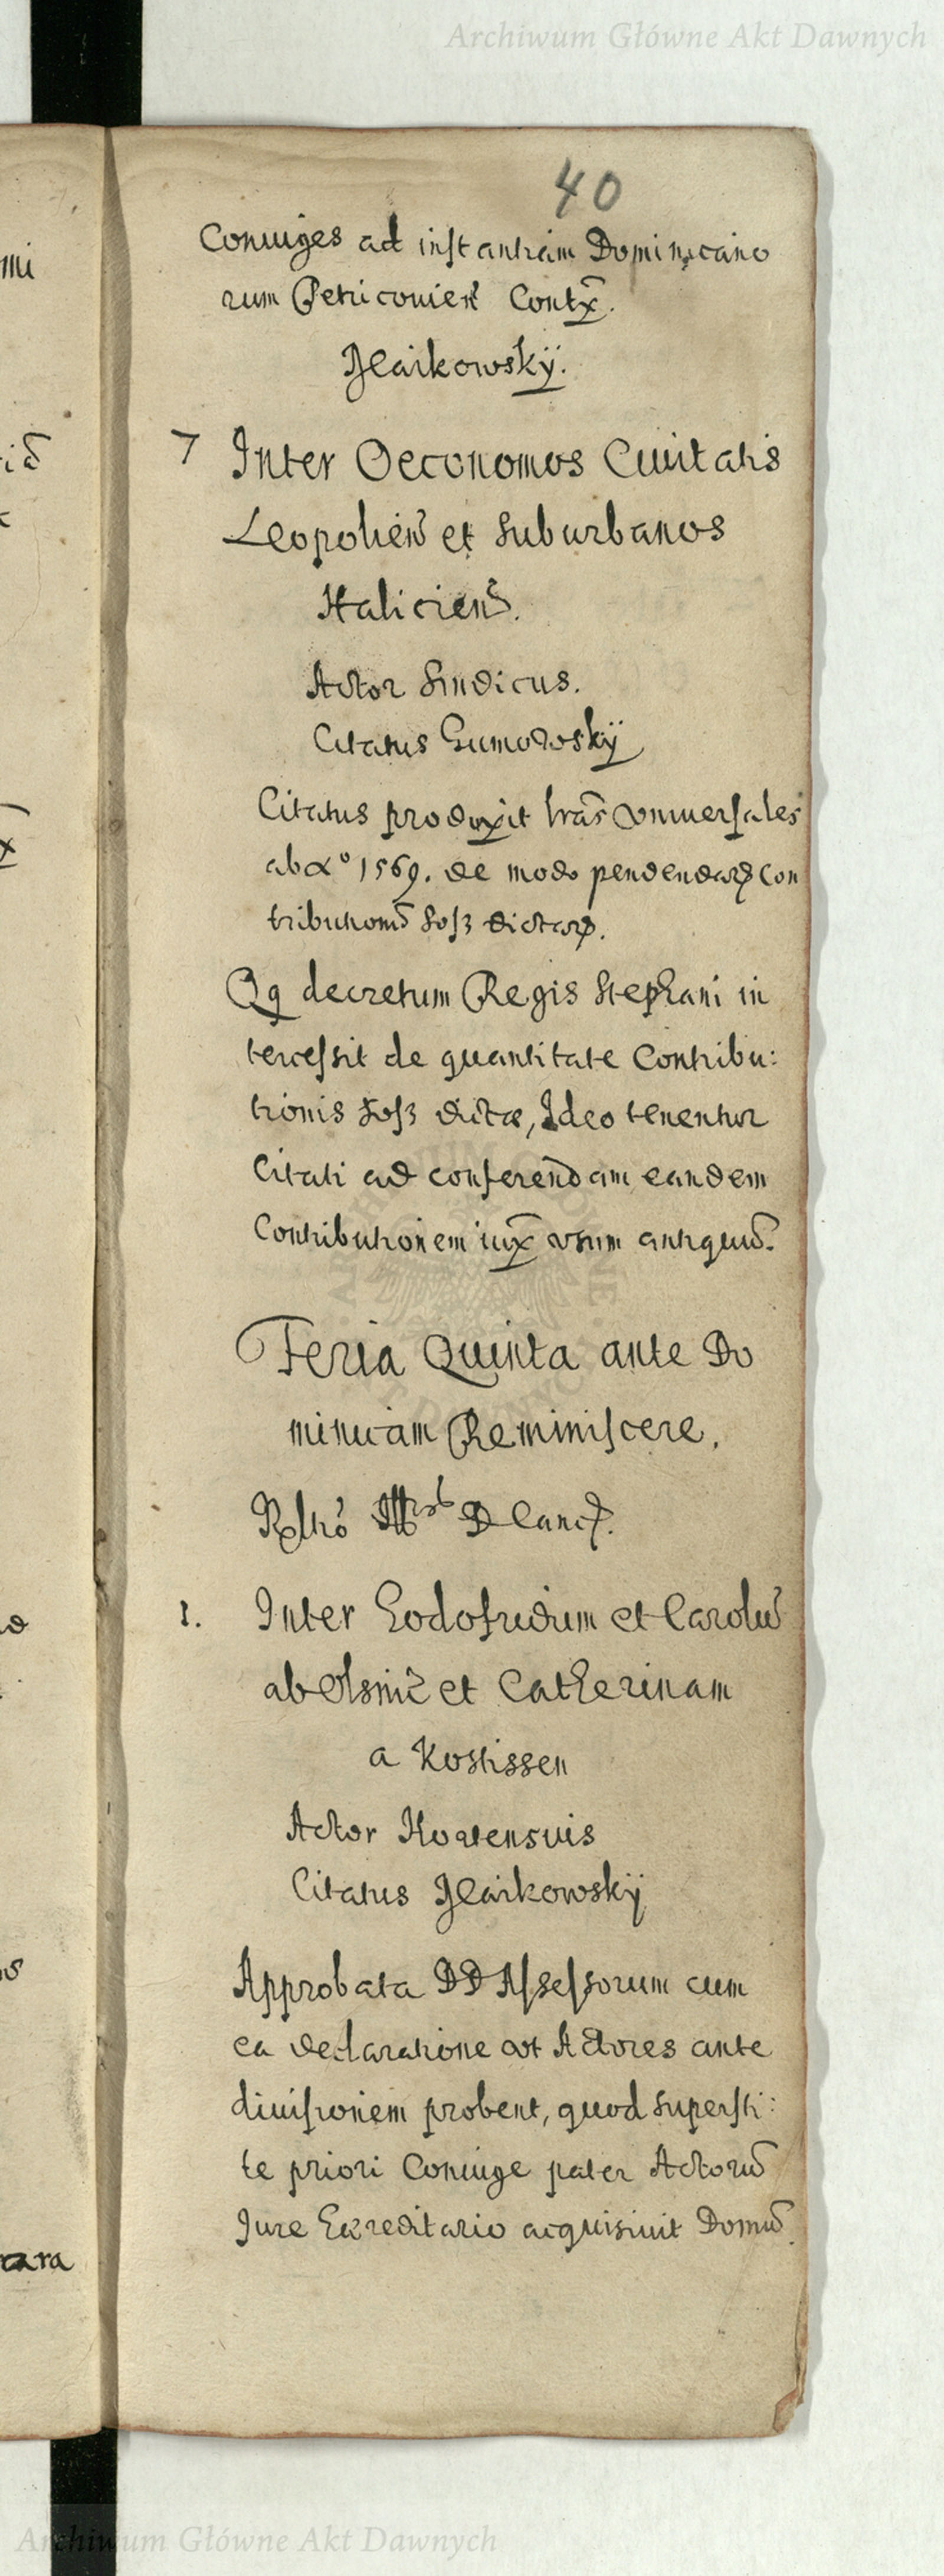 Archiwum Główne Akt Dawnych
40
Coniuiges ad instantiam Dominicano
rum Petricovien Contx.
Jlaikowskÿ.
7 Inter Oeconomos Ciuitatis
Leopolien et suburbanos
Halicien.
Actor Sindicus.
Citatus Gumowskÿ
Citatus produxit lras vniuersales
ab Aº 1569. de modo pendendar Con
tribution Sosz dictar.
Qq decretum Regis Stephani in
tercessit de quantitate Contribu:
tionis Sosz dictæ, Ideo tenentur
Citati ad conferendam eandem
Contributionem iux vsum antiquu.
Feria Quinta ante Do
minicam Reminiscere.
D Canc.
1. Inter Godofridum et Carolu
ab et Catherinam
a Kostissen
Actor
Citatus Jlaikowskÿ
Approbata DD Assessorum cum
ea declaratione vt Actores ante
diuisionem probent, quod supersti:
te priori Coniuge pater Actoru
Jure Hæreditario acquisiuit Domu
Archiwum Główne Akt Dawnych